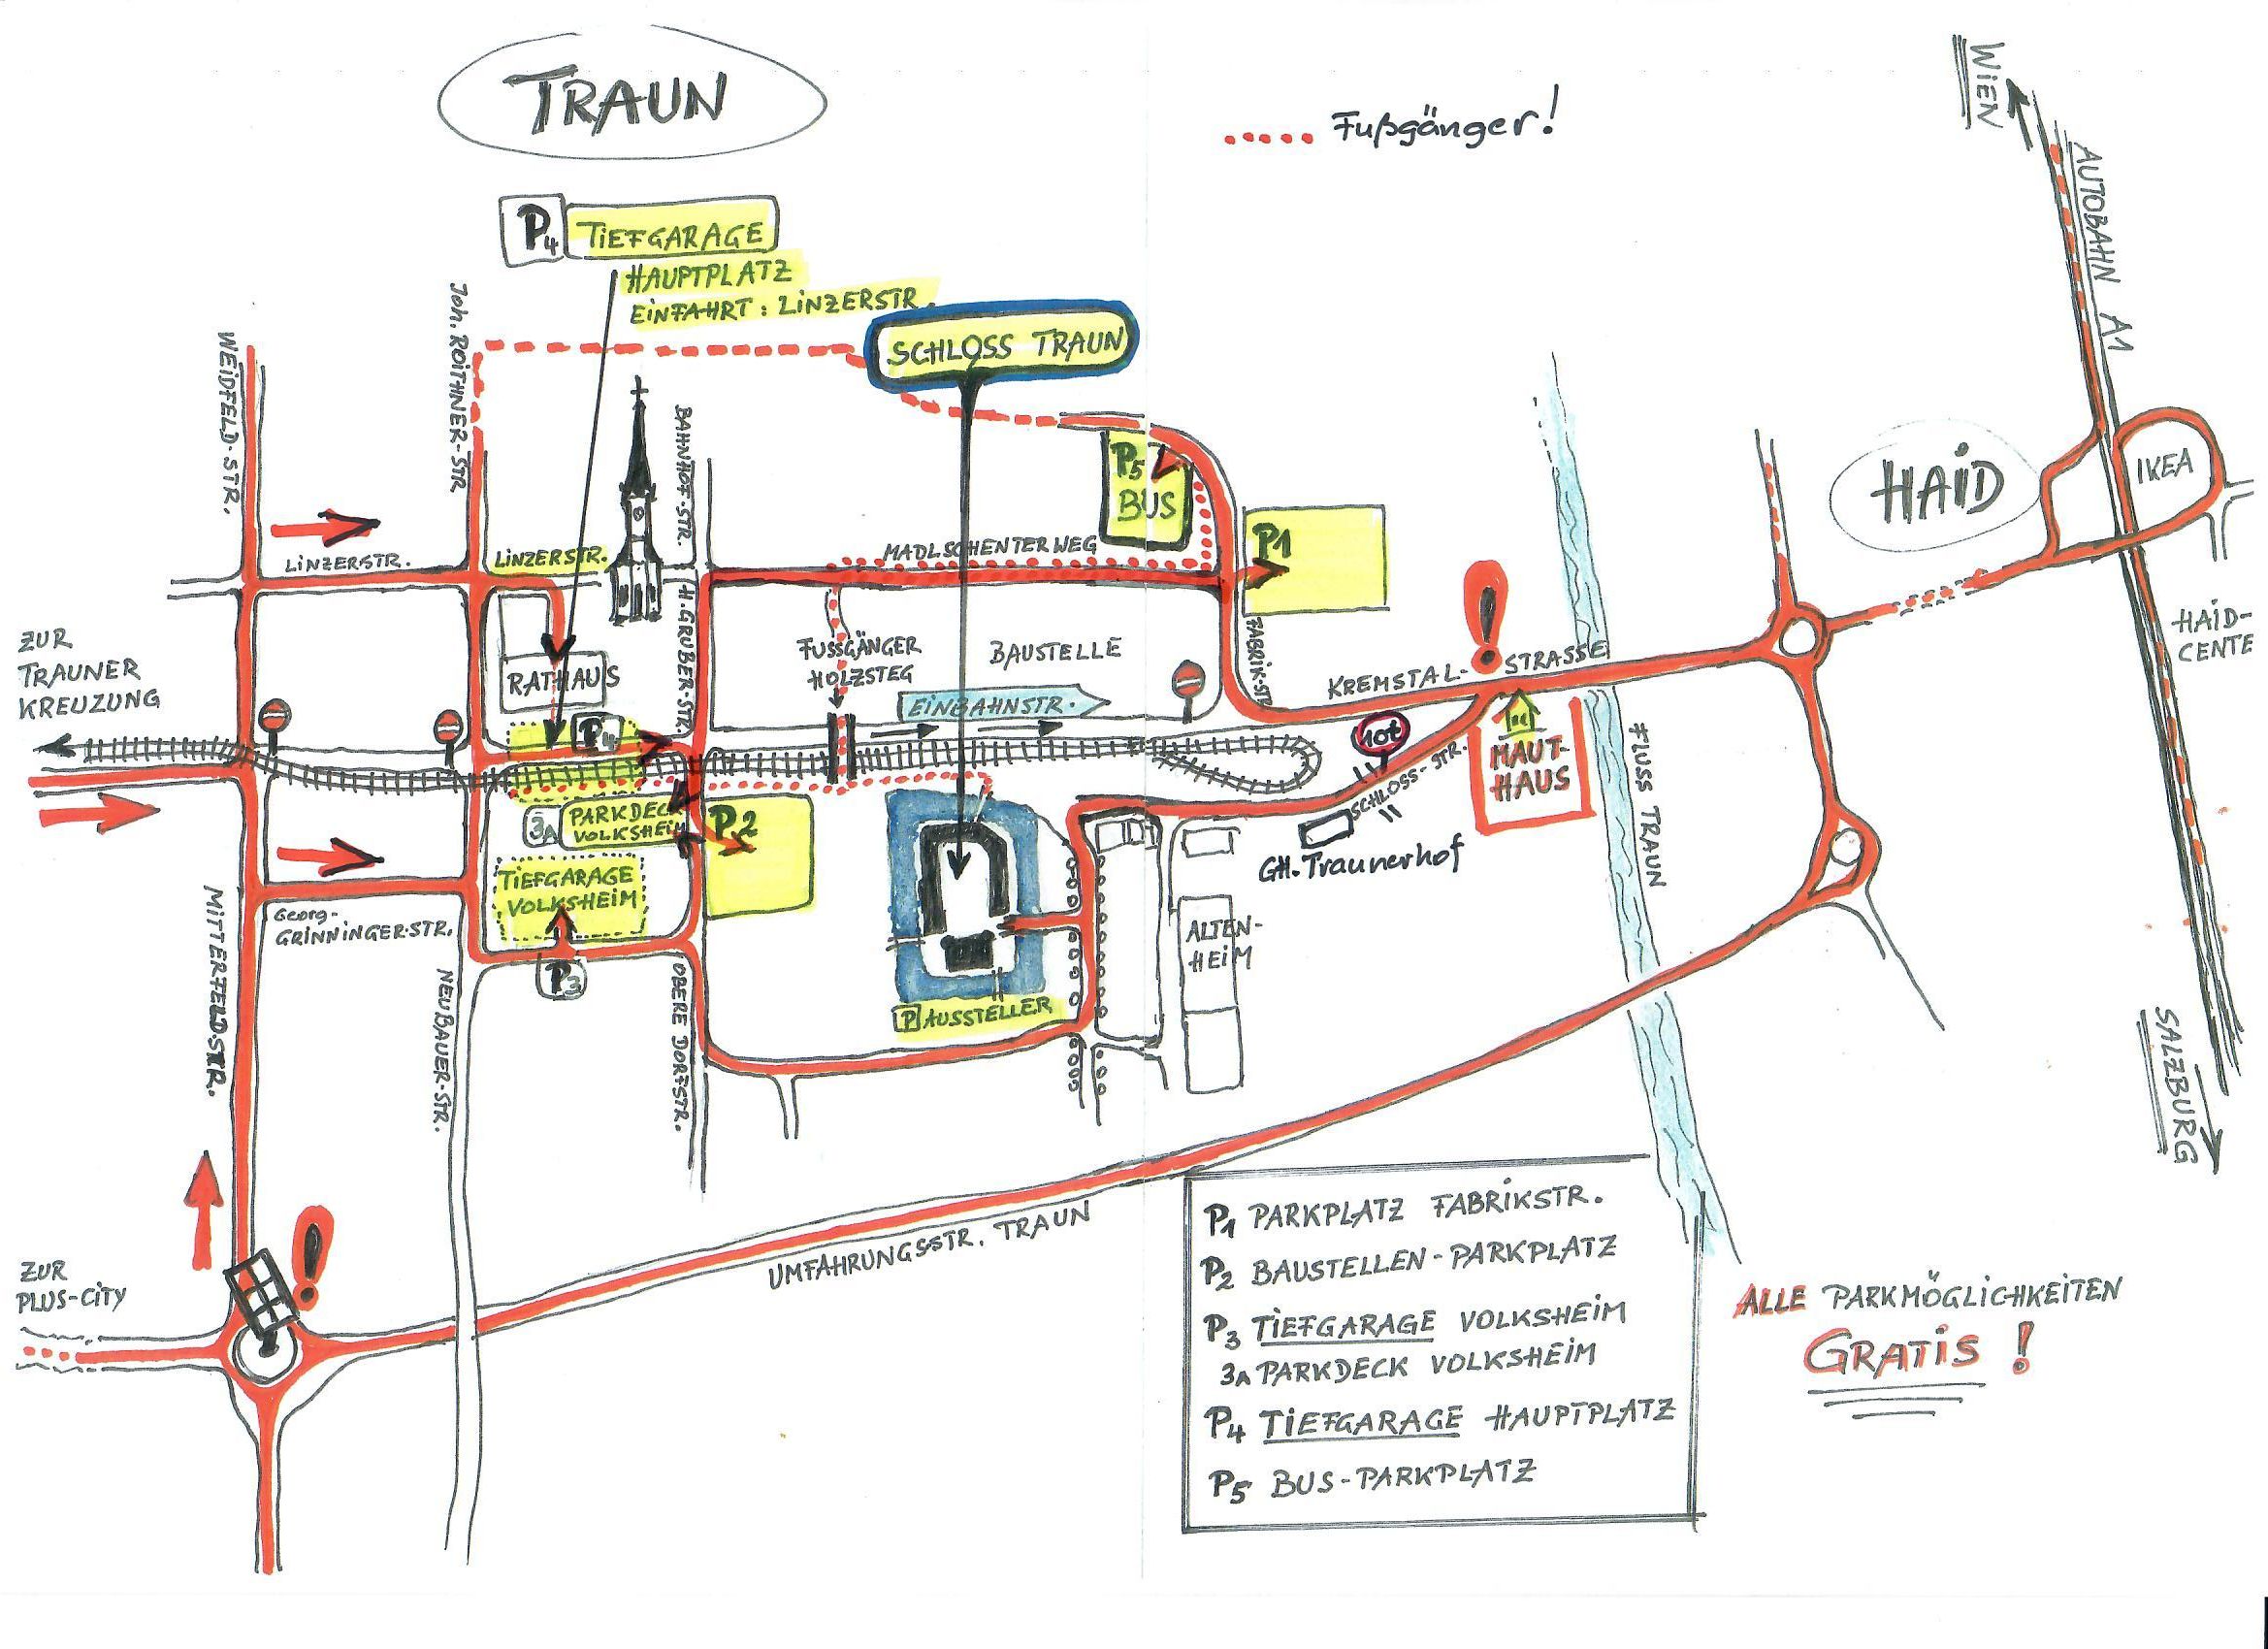 TRAUN
Fußgänger!
WIEN
AUTOBAHN A1
P4 TIEFGARAGE
HAUPTPLATZ
EINFAHRT: LINZERSTR.
SCHLOSS TRAUN
WEIDFELD-STR.
Joh. ROITHNER-STR
BAHNHOF-STR.
P5
BUS
HAID
IKEA
LINZERSTR.
LINZERSTR.
MADLSCHENTERWEG
P1
H.GRUBER-STR.
FABRIK-STR
ZUR
TRAUNER
KREUZUNG
RATHAUS
FUSSGÄNGER
HOLZSTEG
BAUSTELLE
EINBAHNSTR.
KREMSTAL-STRASSE
HAID-
CENTE
P4
10t
SCHLOSS-STR.
MAUT-
HAUS
FLUSS TRAUN
3A PARKDECK
VOLKSHEIM
P2
GH. Traunerhof
TIEFGARAGE
VOLKSHEIM
P3
Georg-
GRINNINGER-STR.
MITTERFELDSTR.
NEUBAUER-STR.
OBERE DORFSTR.
ALTEN-
HEIM
P AUSSTELLER
SALZBURG
UMFAHRUNGSSTR. TRAUN
ZUR
PLUS-CITY
P1 PARKPLATZ FABRIKSTR.
P2 BAUSTELLEN-PARKPLATZ
P3 TIEFGARAGE VOLKSHEIM
3A PARKDECK VOLKSHEIM
P4 TIEFGARAGE HAUPTPLATZ
P5 BUS-PARKPLATZ
ALLE PARKMÖGLICHKEITEN
GRATIS!